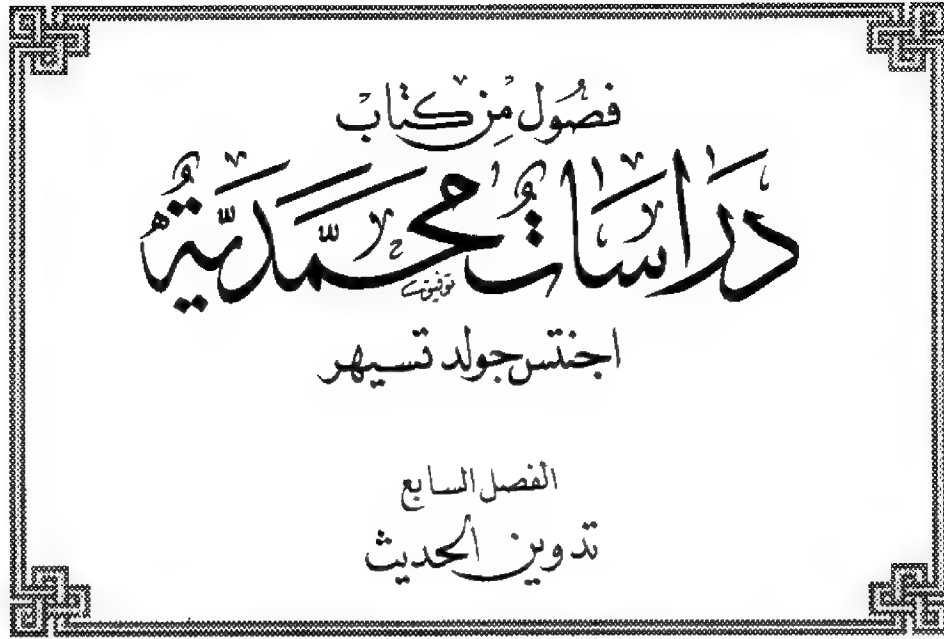 فصول من كتاب
دراسات محمدية
توفيق
اجنتس جولد تسيهر
الفصل السابع
تدوين الحديث